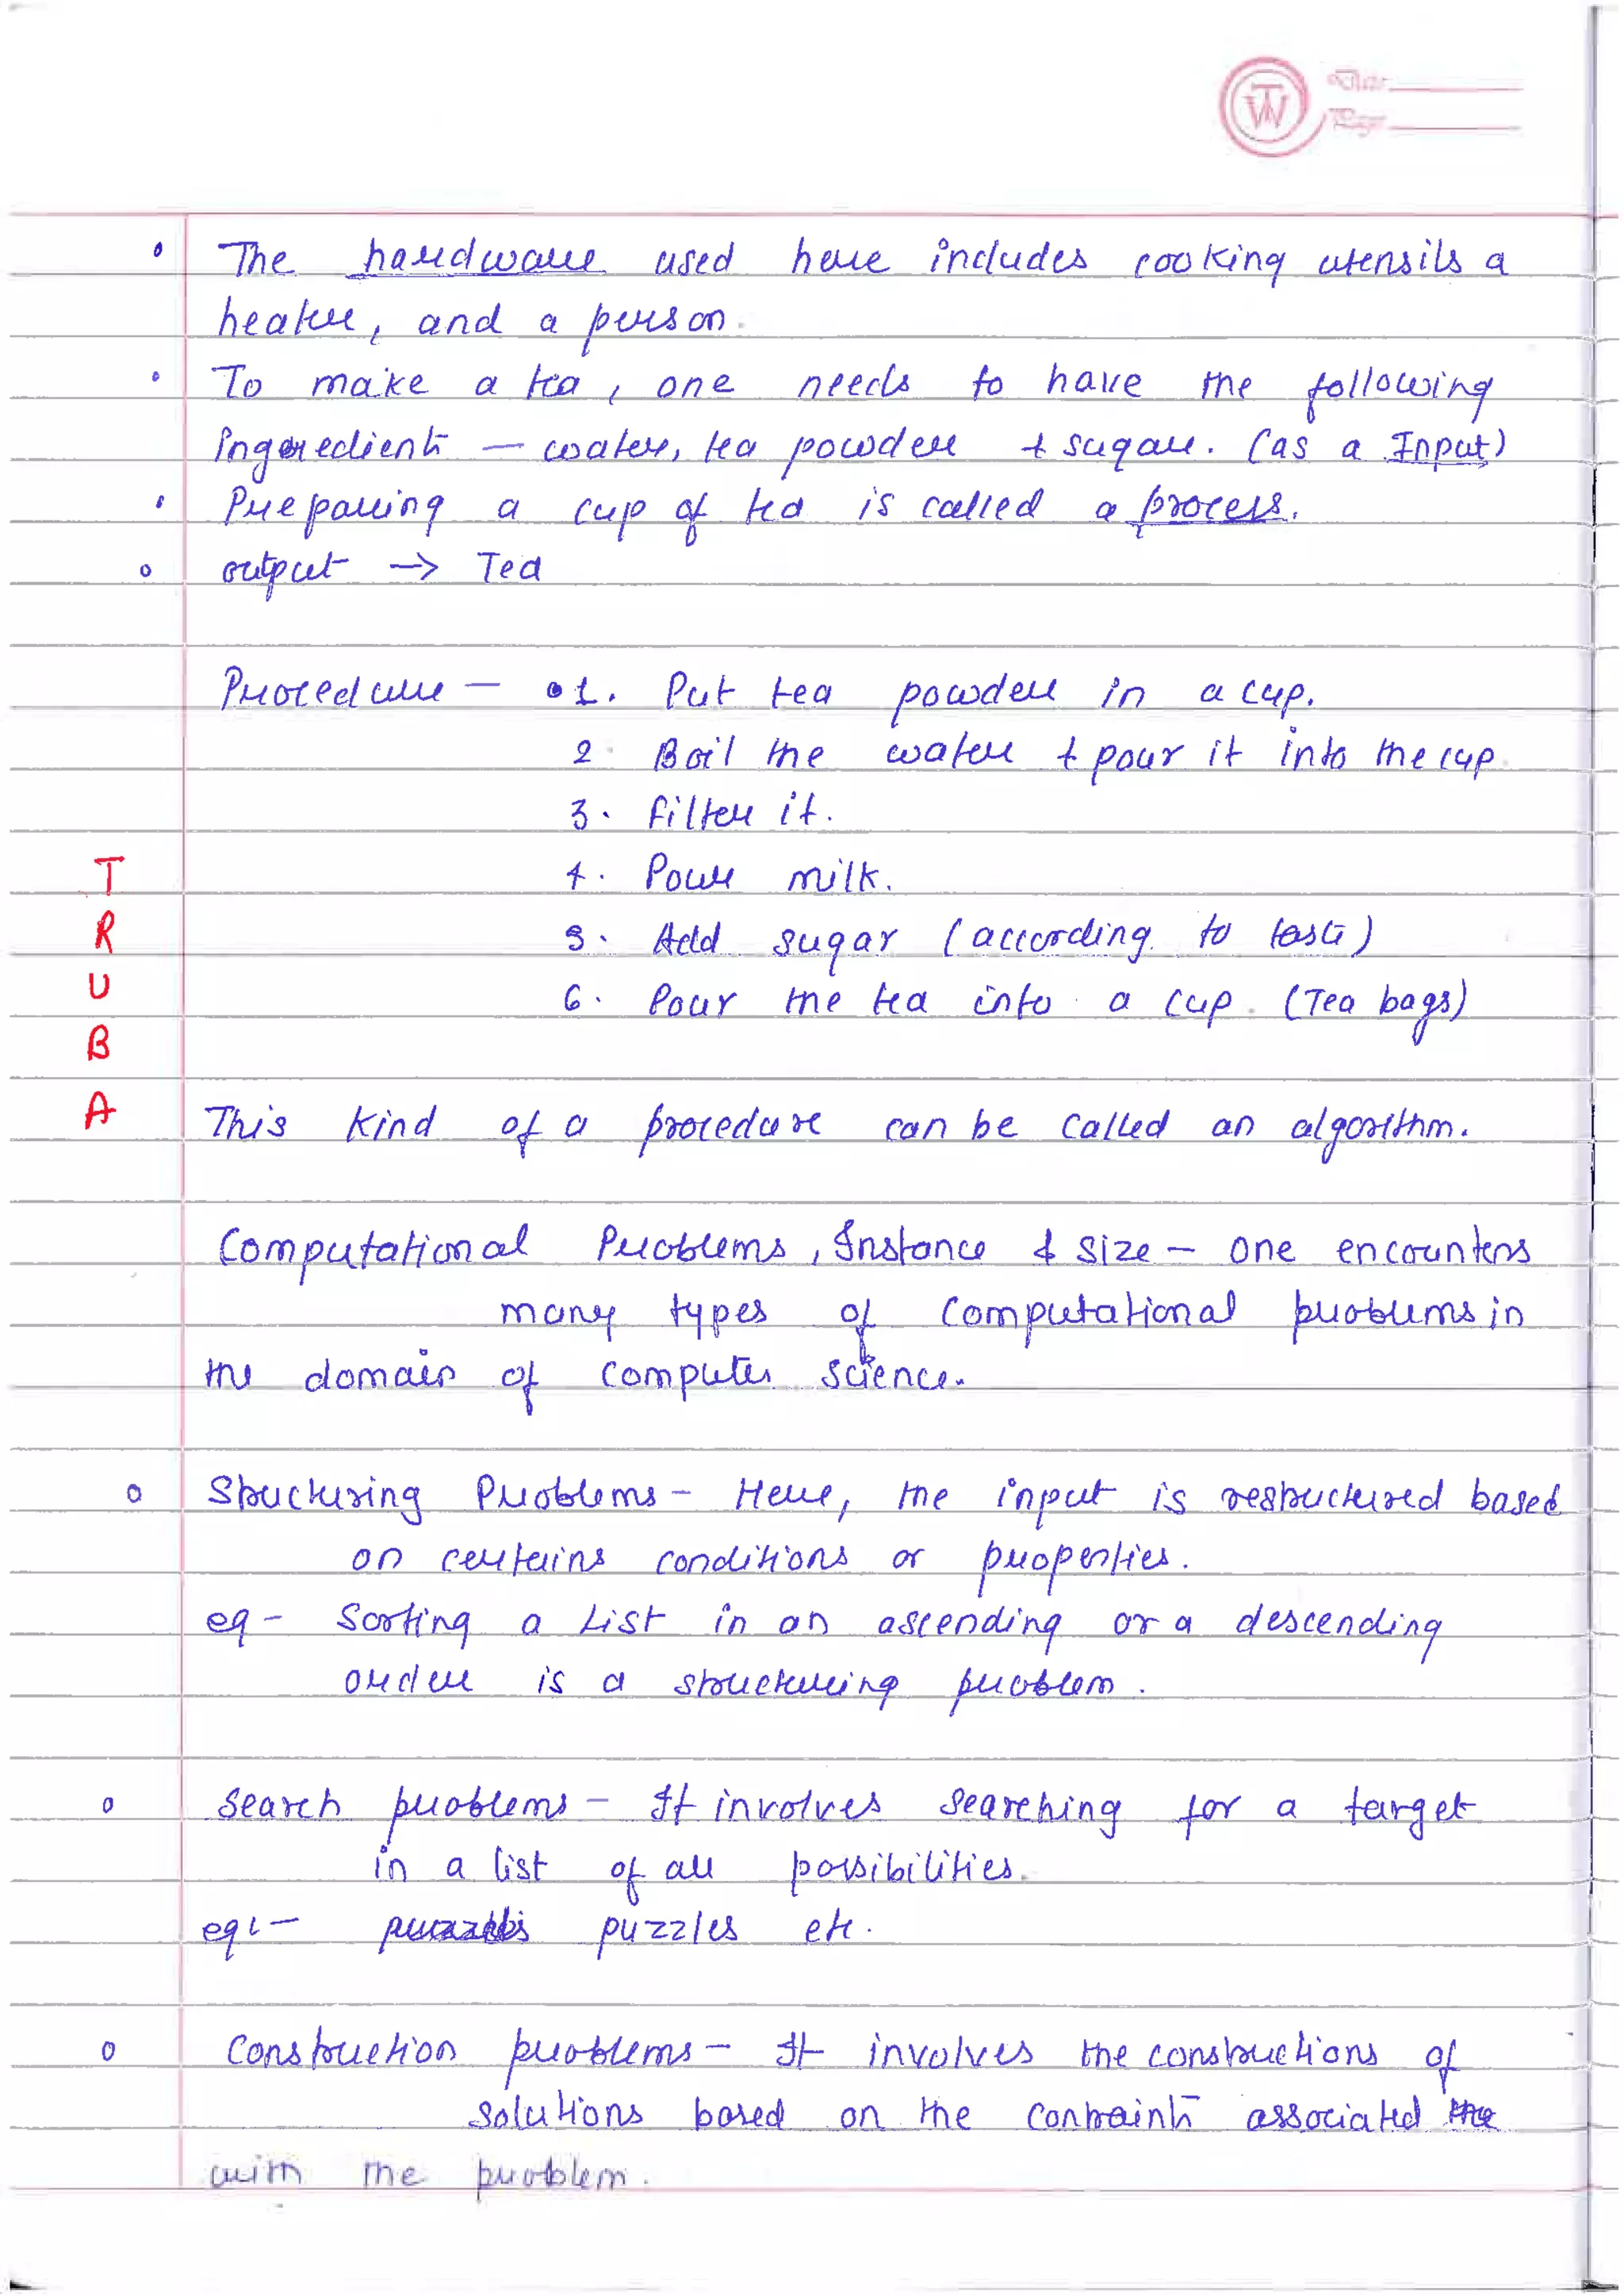 TW
Date
Page
The hardware used here includes cooking utensils a
heater, and a person.
To make a tea, one needs to have the following
Ingredients — water, tea powder & sugar. (as a Input)
Preparing a cup of tea is called a process.
output → Tea
Procedure — 1. Put tea powder in a cup.
2. Boil the water & pour it into the cup.
3. Filter it.
4. Pour milk.
5. Add sugar (according to taste)
6. Pour the tea into a cup. (Tea bags)
T
R
U
B
A
This kind of a procedure can be called an algorithm.
Computational Problems, Instance & Size — One encounters
many types of Computational problems in
the domain of computer science.
Structuring Problems - Here, the input is restructured based
on certains conditions or properties.
eg - Sorting a List in an ascending or a descending
order is a structuring problem.
Search problems - It involves searching for a target
in a list of all possibilities.
eg:- puzzles etc.
Construction problems - It involves the constructions of
solutions based on the contraints associated the
with the problem.